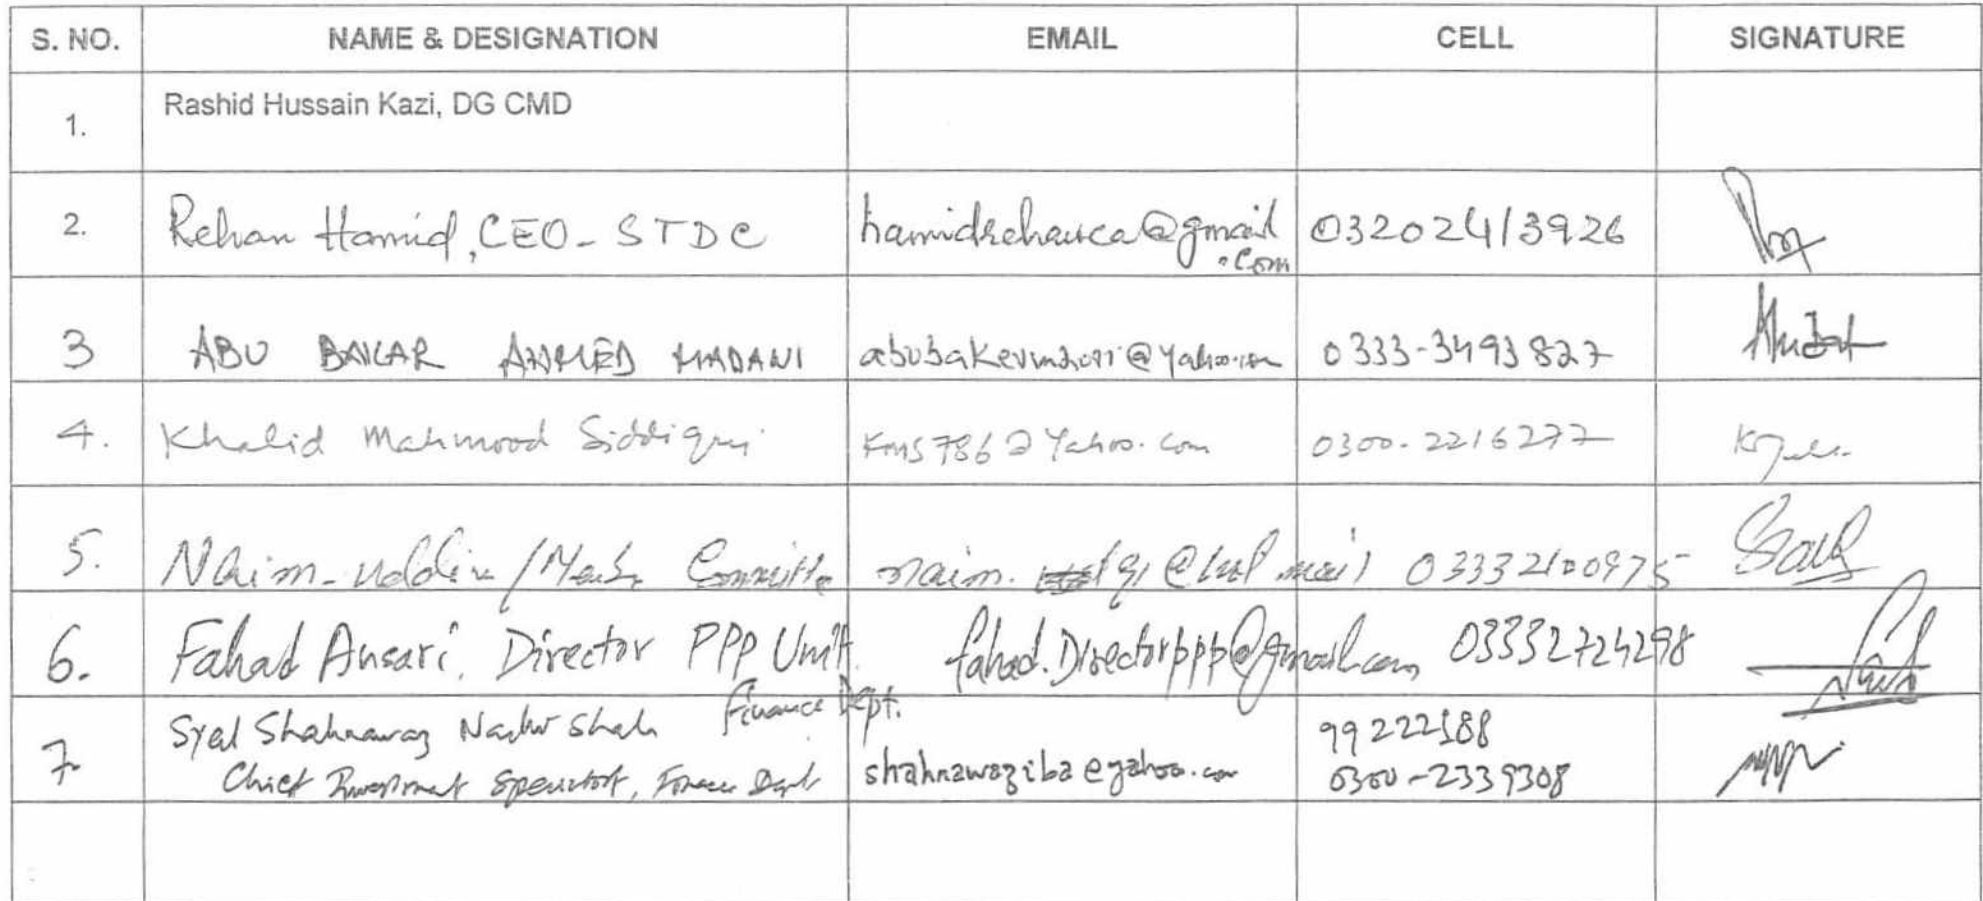 S. NO. NAME & DESIGNATION EMAIL CELL SIGNATURE
1. Rashid Hussain Kazi, DG CMD
2. Rehan Hamid, CEO- STDC hamidrehanca@gmail 03202413926
.com
3 ABU BAKAR AHMED MADANI 0333-3493827
4. Khalid Mahmood Siddiqui kms786@Yahoo.com 0300-2216277
5. Naim-uddin / Committe naim. @ 03332100975
6. Fahad Ansari, Director PPP Unit fahad.Directorppp@gmail.com 03332724298
Finance Dept.
7 Syed Shahnawaz Nadir Shah 99222188
Chief Investment Specialist, Finance Dept shahnawaziba@yahoo.com 0300-2339308